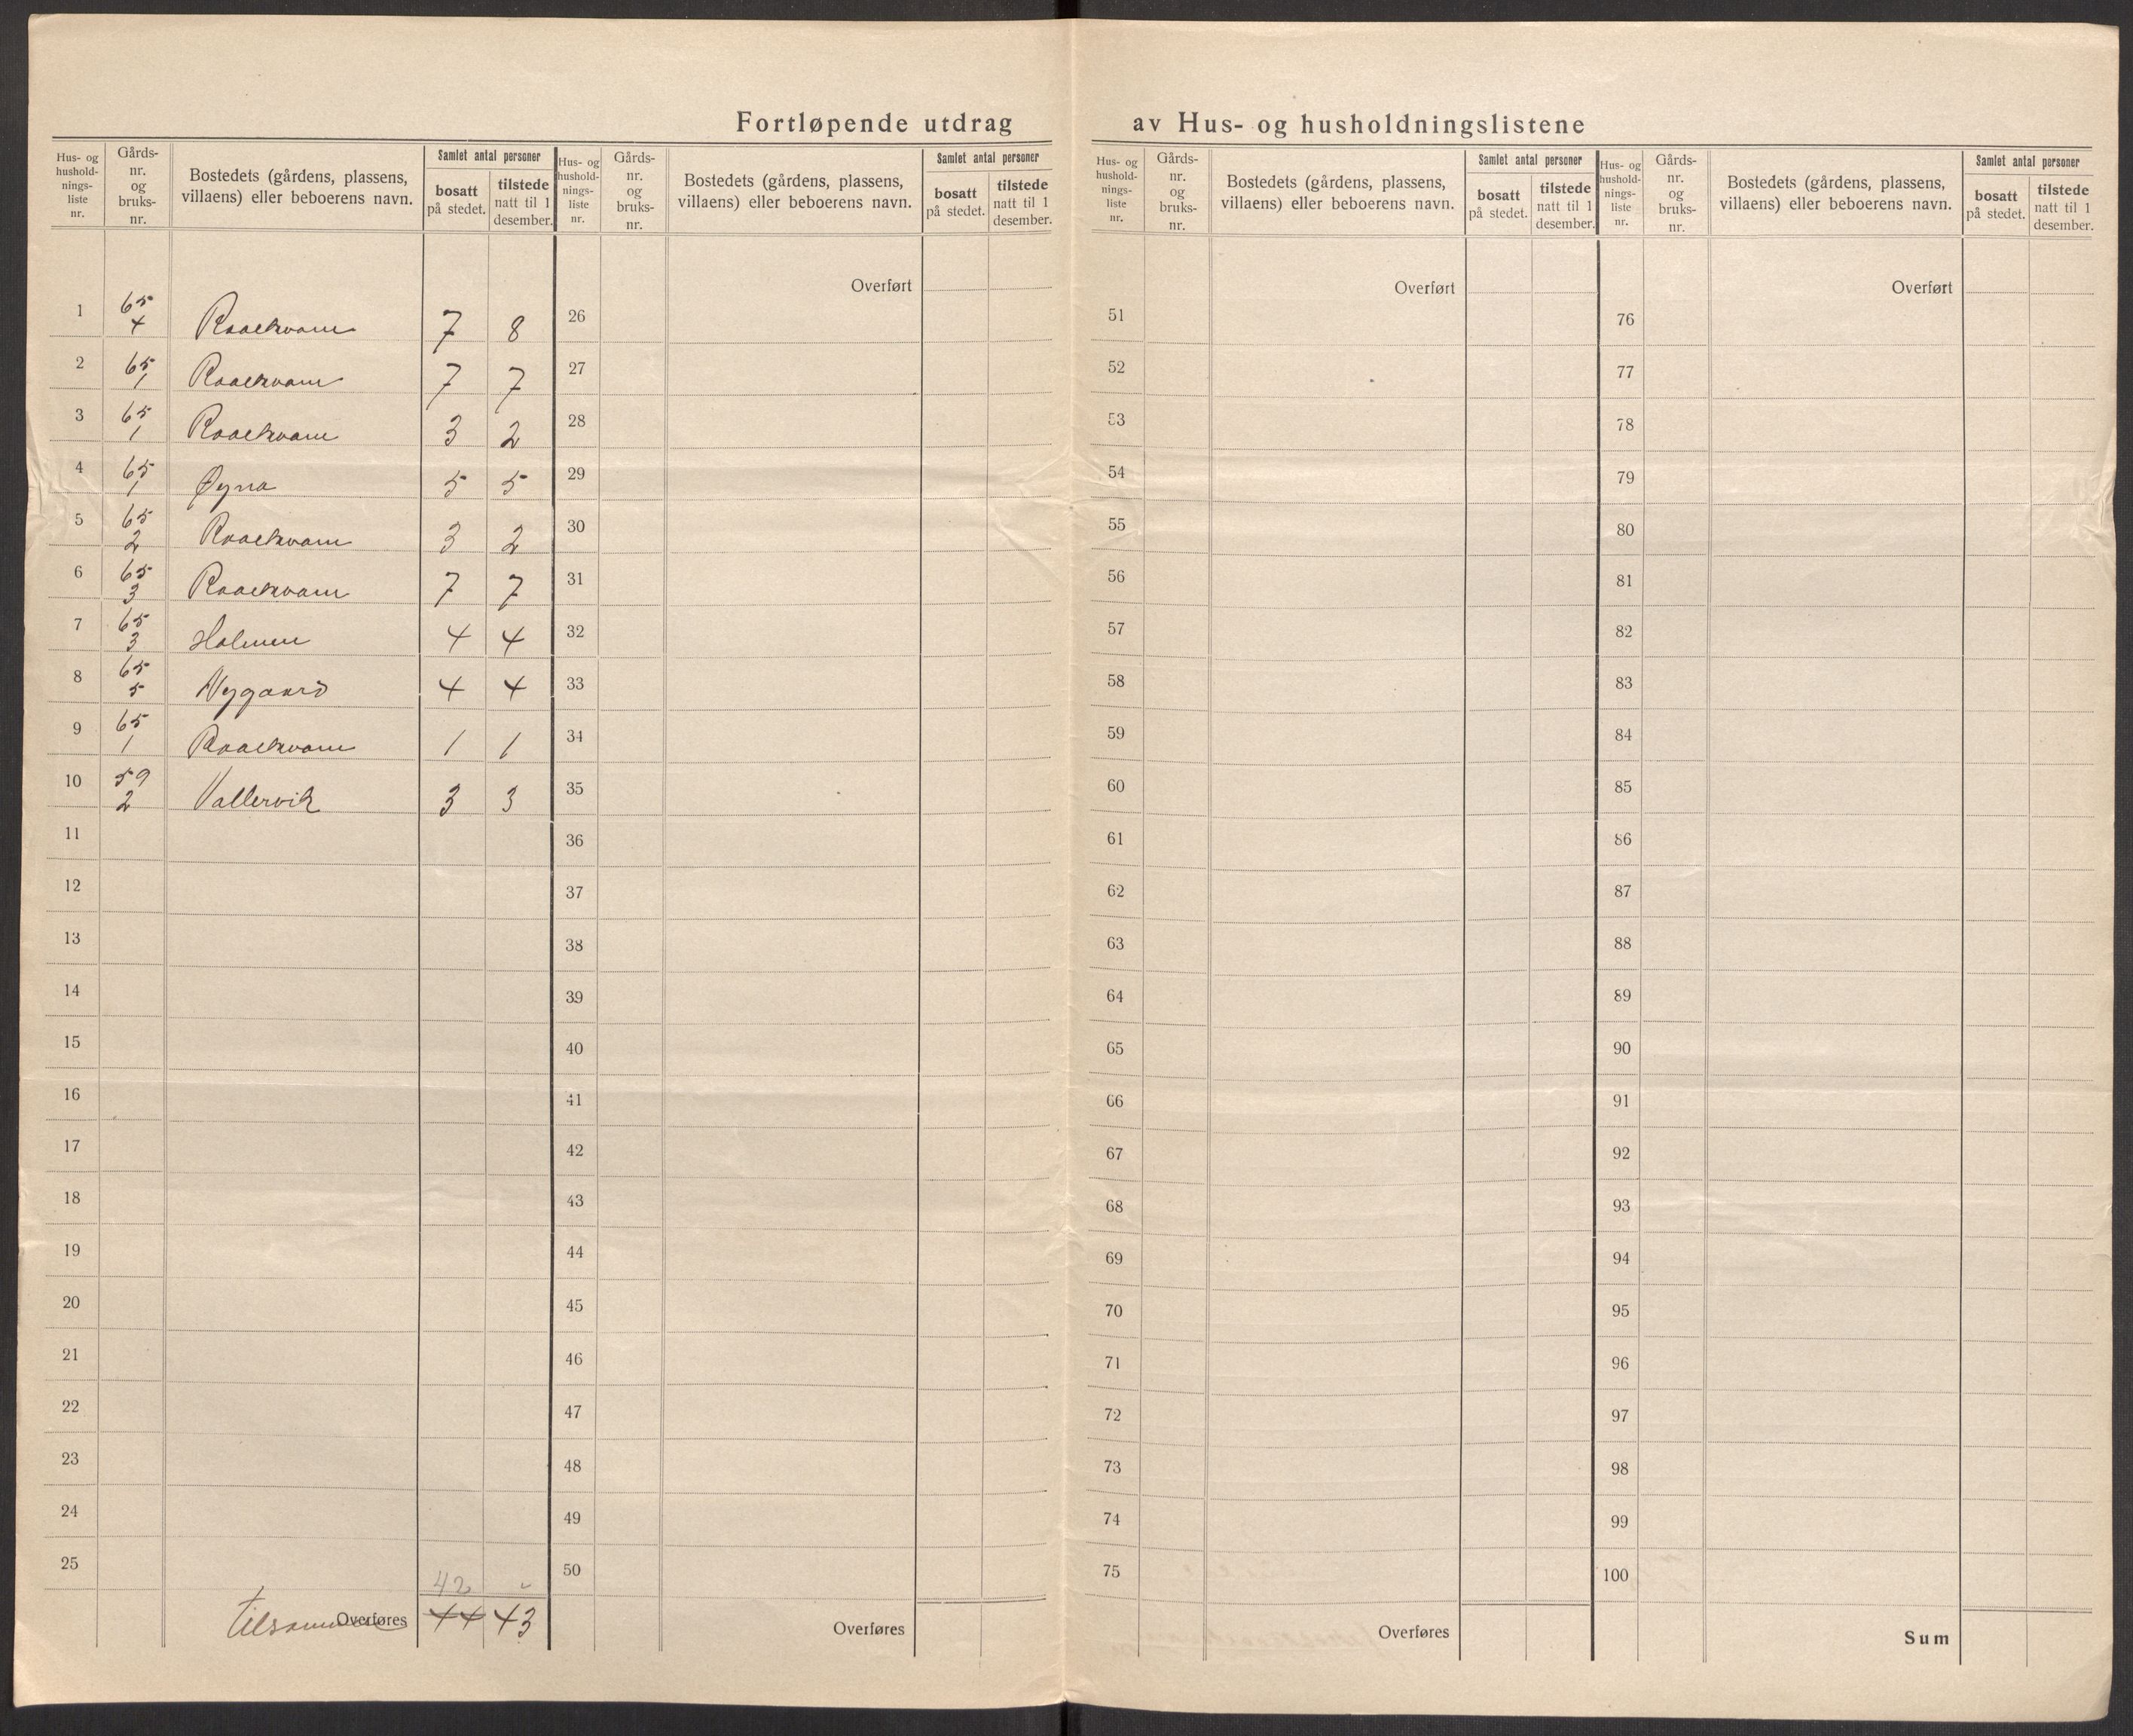 Fortløpende utdrag av Hus- og husholdningslistene
Hus- og hushold-nings-liste nr. Gårds-nr. og bruks-nr. Bostedets (gårdens, plassens, villaens) eller beboerens navn. Samlet antal personer bosatt på stedet. tilstede natt til 1 desember.
Hus- og hushold-nings-liste nr. Gårds-nr. og bruks-nr. Bostedets (gårdens, plassens, villaens) eller beboerens navn. Samlet antal personer bosatt på stedet. tilstede natt til 1 desember.
Hus- og hushold-nings-liste nr. Gårds-nr. og bruks-nr. Bostedets (gårdens, plassens, villaens) eller beboerens navn. Samlet antal personer bosatt på stedet. tilstede natt til 1 desember.
Hus- og hushold-nings-liste nr. Gårds-nr. og bruks-nr. Bostedets (gårdens, plassens, villaens) eller beboerens navn. Samlet antal personer bosatt på stedet. tilstede natt til 1 desember.
1 65 4 Raaekvam 7 8
2 65 1 Raaekvam 7 7
3 65 1 Raaekvam 3 2
4 65 1 Øyna 5 5
5 65 2 Raaekvam 3 2
6 65 3 Raaekvam 7 7
7 65 3 Holmen 4 4
8 65 5 Nygaard 4 4
9 65 1 Raaekvam 1 1
10 59 2 Vallervik 3 3
11
12
13
14
15
16
17
18
19
20
21
22
23
24
25
42
Tilsammen Overføres 44 43
Overført
26
27
28
29
30
31
32
33
34
35
36
37
38
39
40
41
42
43
44
45
46
47
48
49
50
Overføres
Overført
51
52
53
54
55
56
57
58
59
60
61
62
63
64
65
66
67
68
69
70
71
72
73
74
75
Overføres
Overført
76
77
78
79
80
81
82
83
84
85
86
87
88
89
90
91
92
93
94
95
96
97
98
99
100
Sum